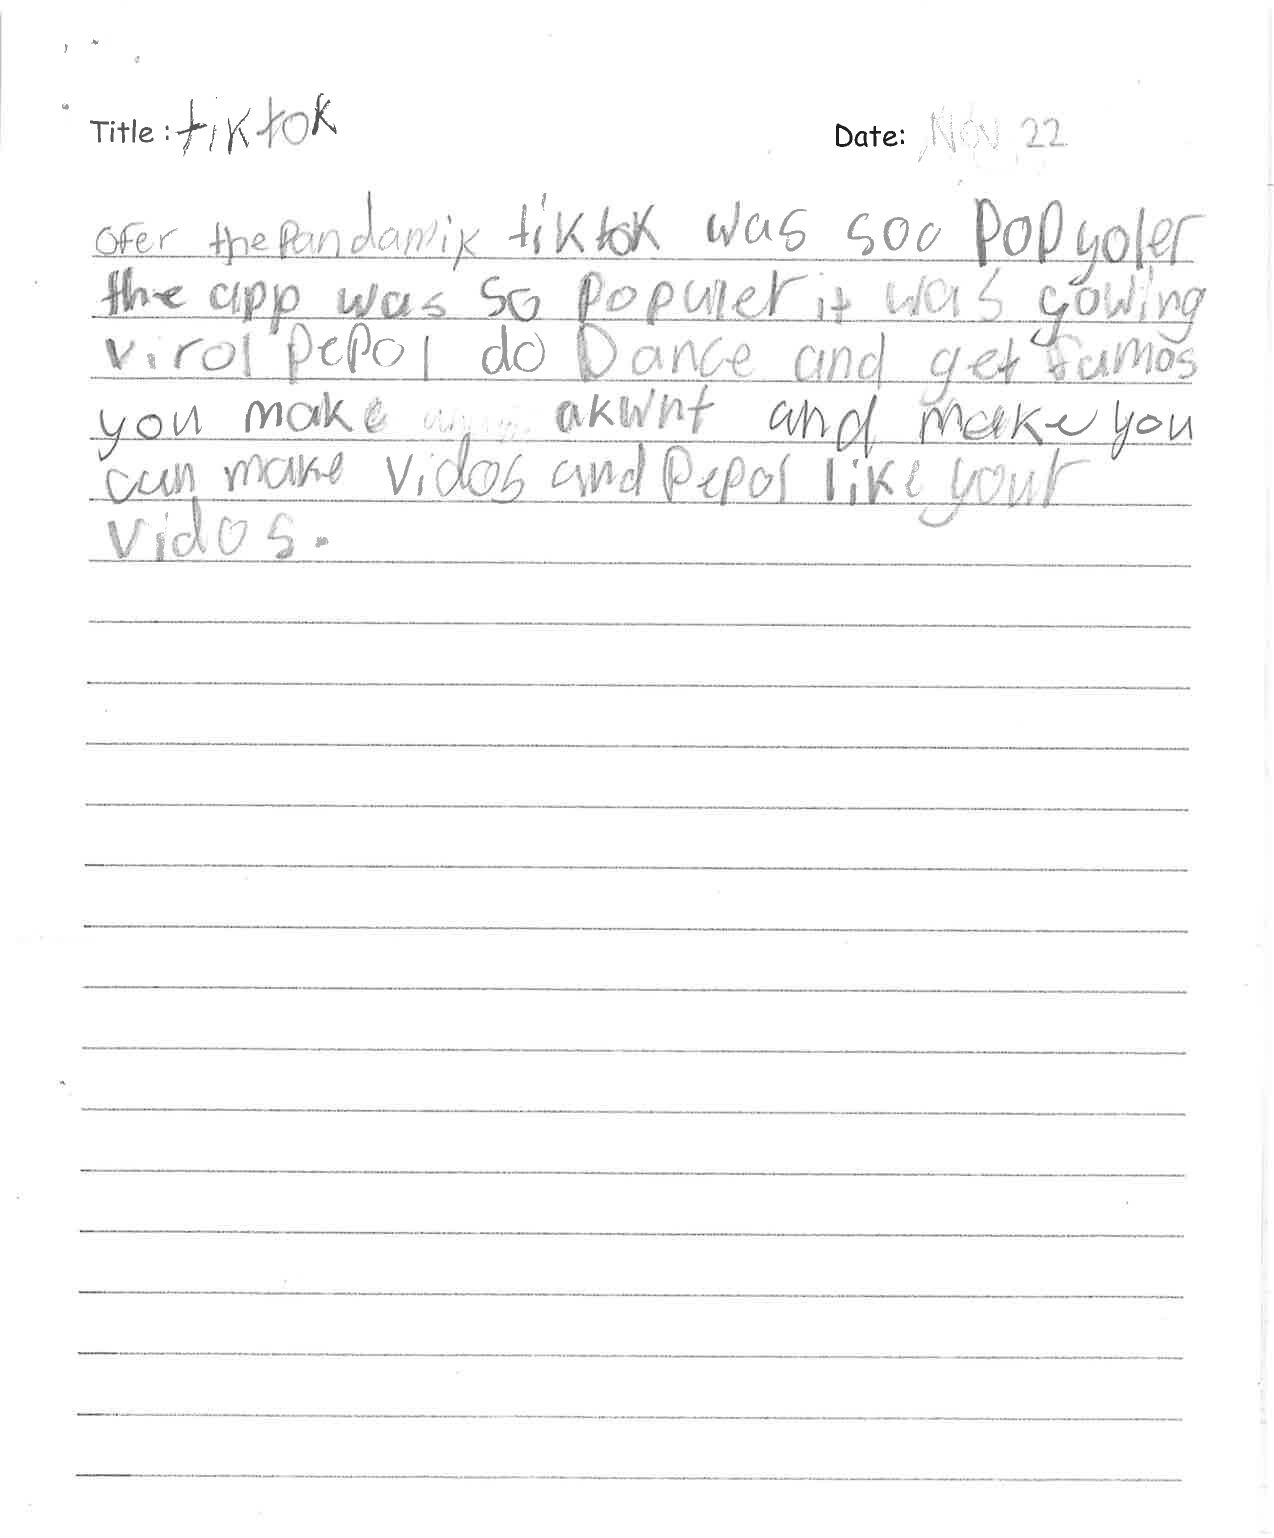 Title: tiktok
Date: Nov 22
ofer the Pandamik tiktok was soo Popyoler
the app was so Populer it was gowing
virol Pepol do Dance and get famos
you make akwnt and make you
can make vidos and Pepol like your
vidos.